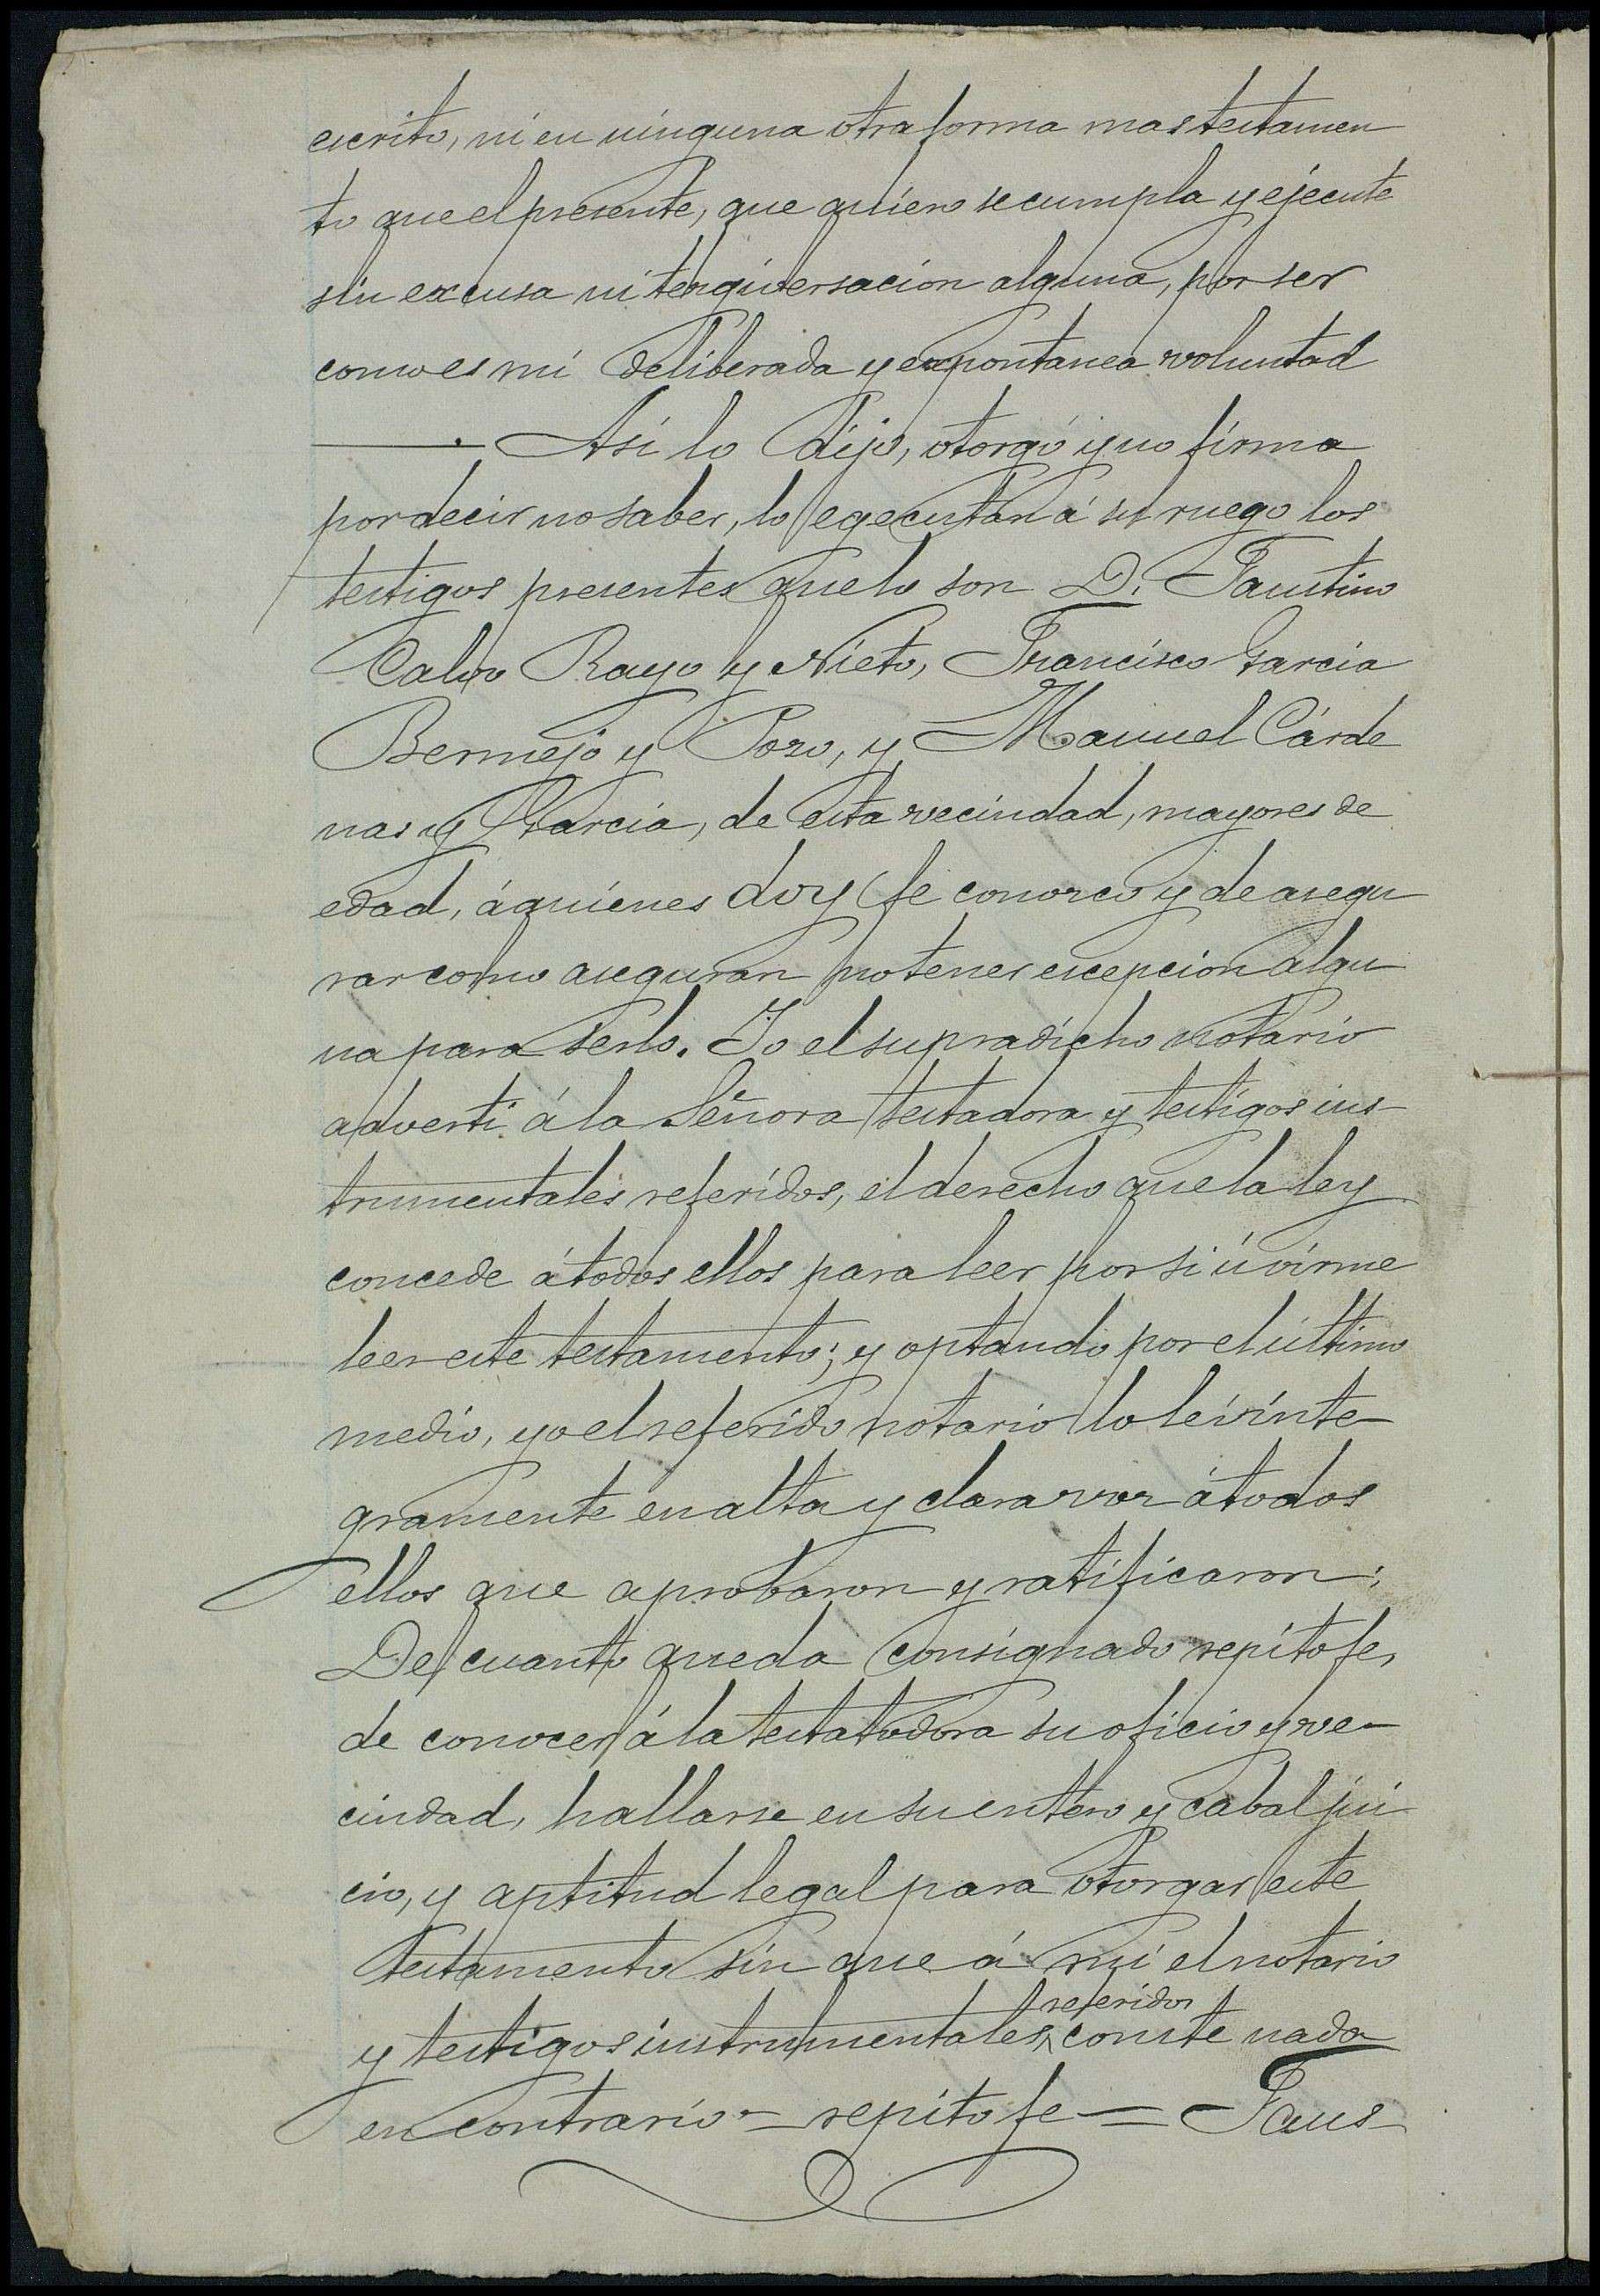 escrito, ni en ninguna otra forma mas testamen
to que el presente, que quiero se cumpla y ejecute
sin excusa ni tergiversacion alguna, por ser
como es mi deliberada y expontanea voluntad
Asi lo dijo, otorgó y no firma
por decir no saber, lo egecutan á su ruego los
testigos presentes que lo son D. Faustino
Calvo Rayo y Nieto, Francisco Garcia
Bermejo y Pozo, y Manuel Cárde
nas y Garcia, de esta vecindad, mayores de
edad, á quiénes doy fe conozco y de asegu
rar como aseguran no tener escepcion algu
na para serlo. Yo el supradicho notario
adverti á la Señora testadora y testigos ins-
trumentales referidos, el derecho que la ley
concede á todos ellos para leer por si ú oirme
leer este testamento; y optando por el último
medio, yo el referido notario lo leí inte-
gramente en alta y clara voz á todos
ellos que aprobaron y ratificaron;
De cuanto queda consignado repito fe,
de conocer á la testatadora su oficio y ve-
cindad, hallarse en su entero y cabal jui
cio, y aptitud legal para otorgar este
testamento sin que á mi el notario
y testigos instrumentales referidos conste nada
en contrario = repito fe = Faus-